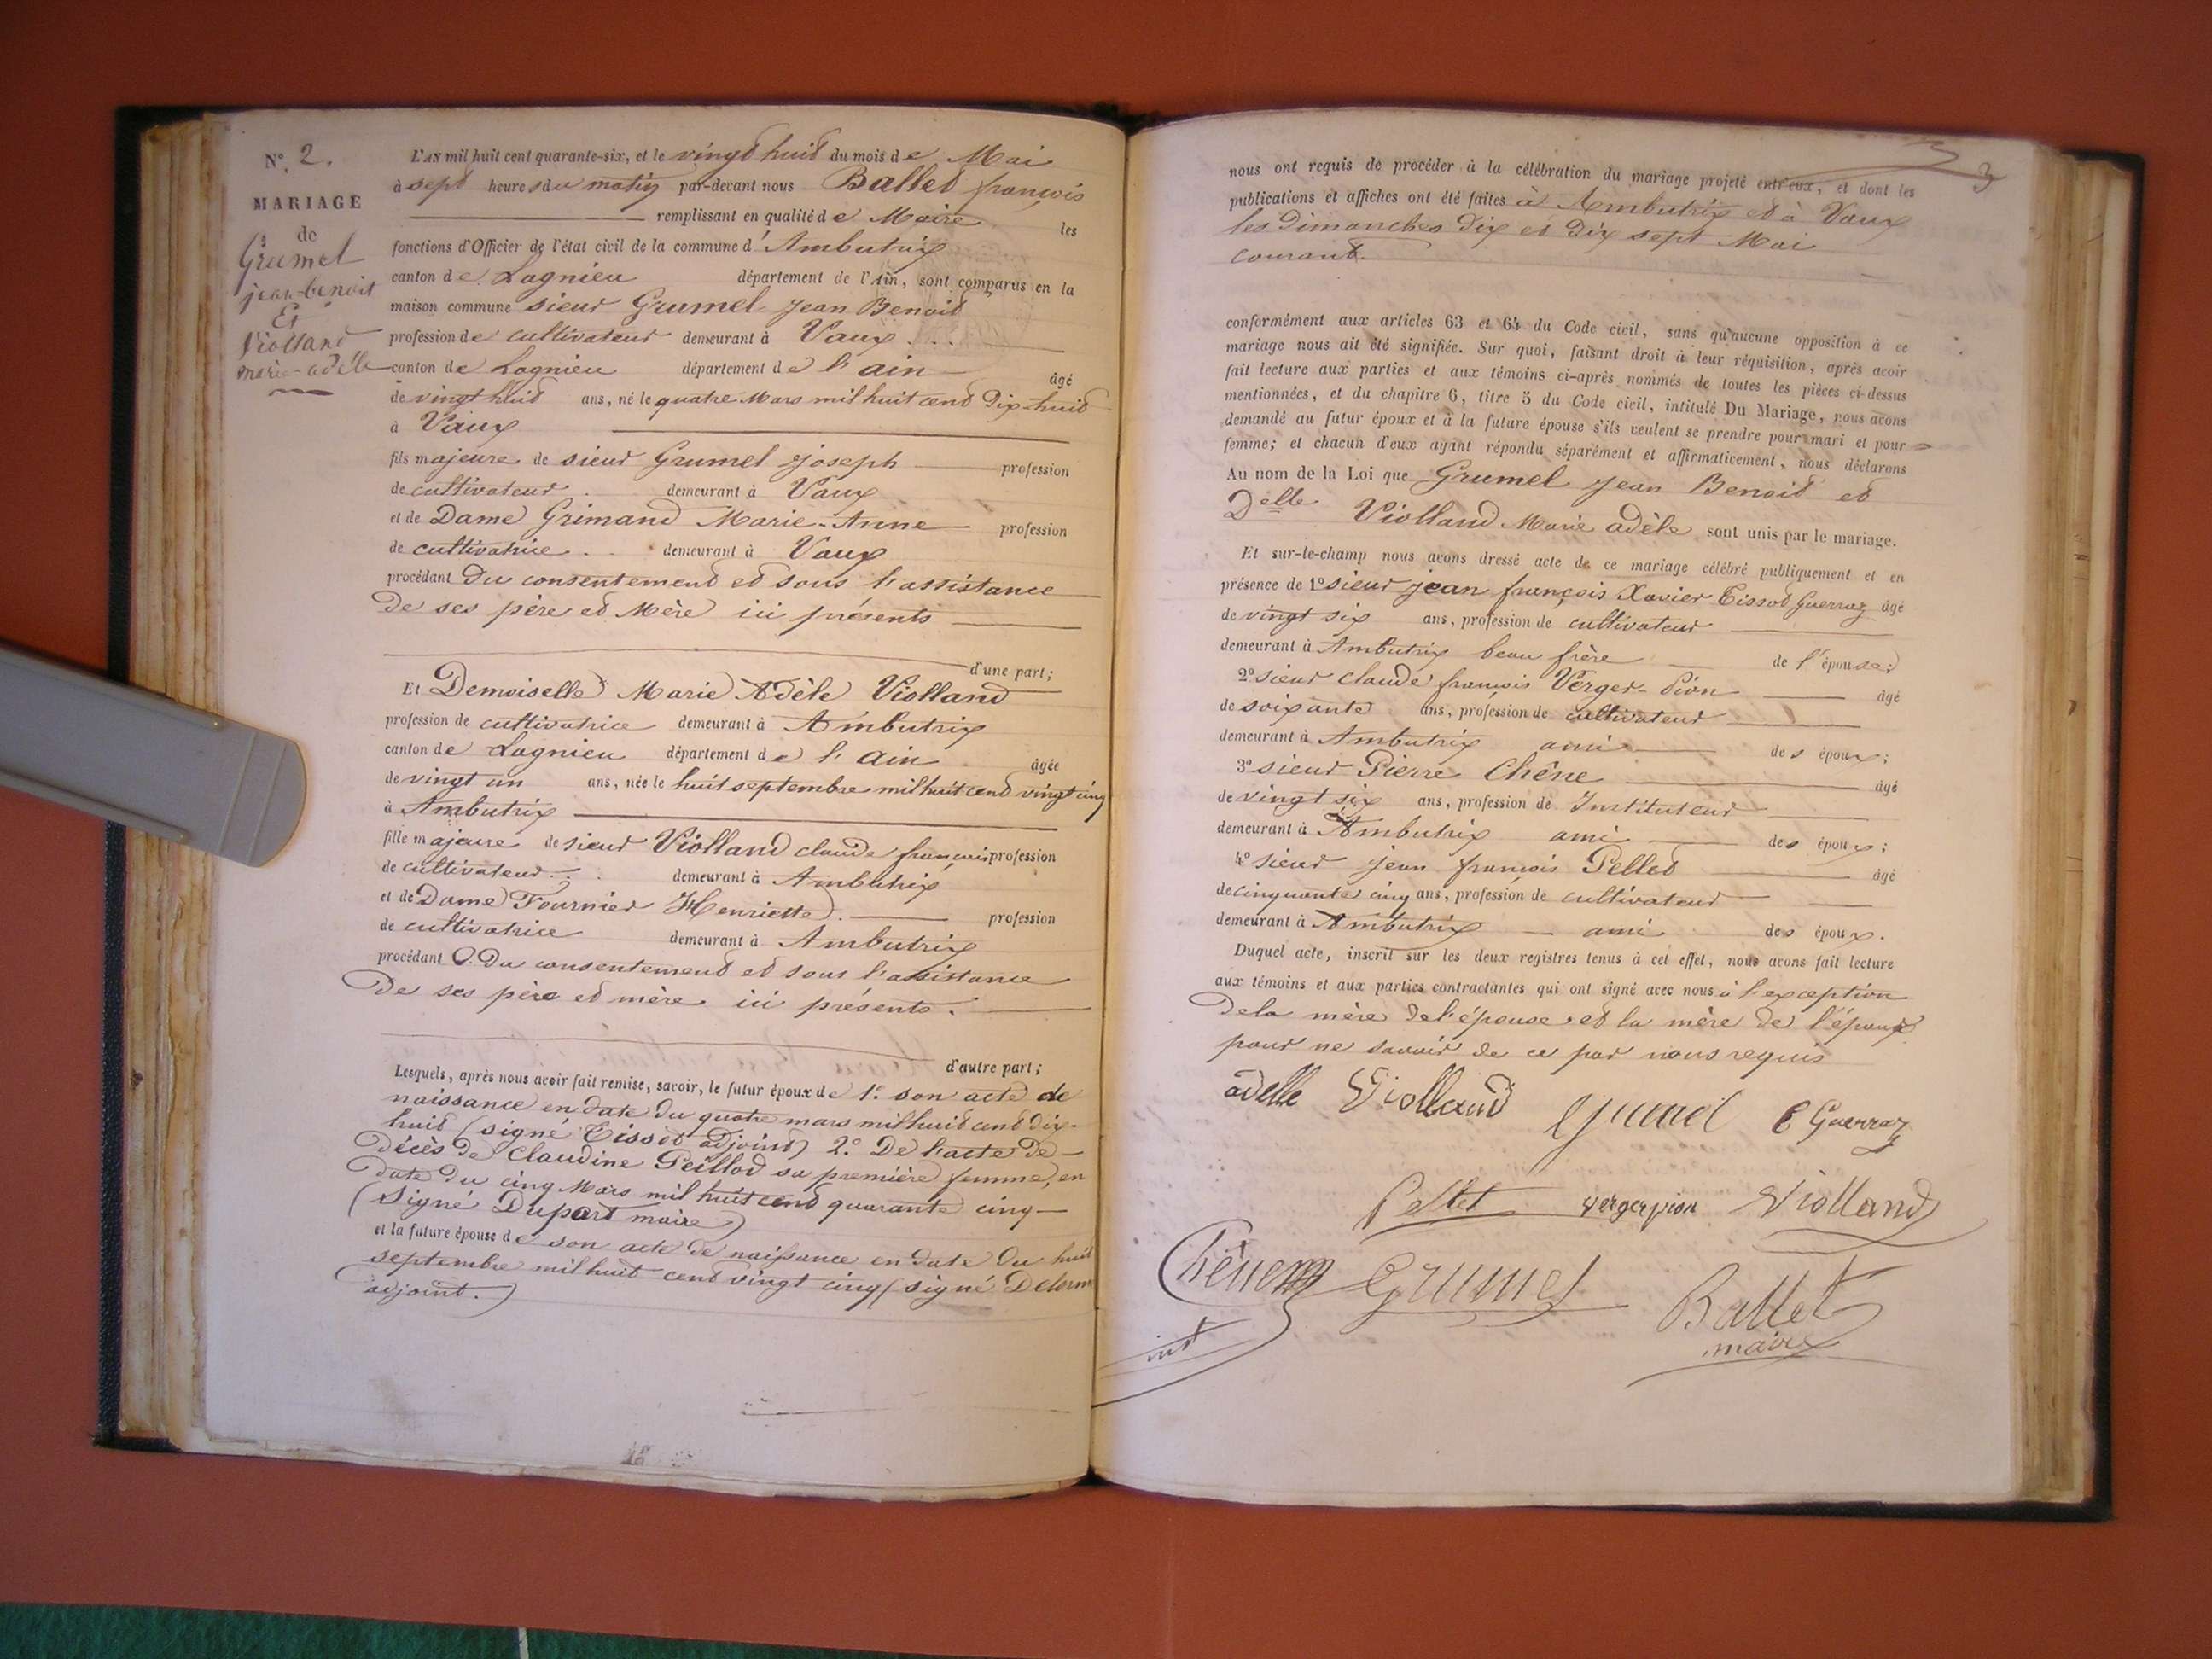 N° 2.
MARIAGE
de
Grumel
jean-benoit
Et
Violland
marie-adèle
L'AN mil huit cent quarante-six, et le vingt huit du mois de Mai
à sept heures du matin par-devant nous Ballet françois
remplissant en qualité de Maire les
fonctions d'Officier de l'état civil de la commune d'Ambutrix
canton de Lagnieu département de l'Ain, sont comparus en la
maison commune sieur Grumel Jean Benoit
profession de cultivateur demeurant à Vaux
canton de Lagnieu département de l'ain âgé
de vingt huit ans, né le quatre Mars mil huit cent dix-huit
à Vaux
fils majeure de sieur Grumel joseph profession
de cultivateur demeurant à Vaux
et de Dame Grimand Marie-Anne profession
de cultivatrice demeurant à Vaux
procédant du consentement et sous l'assistance
de ses père et Mère ici présents
d'une part;
Et Demoiselle Marie Adèle Violland
profession de cultivatrice demeurant à Ambutrix
canton de Lagnieu département de l'ain âgée
de vingt un ans, née le huit septembre mil huit cent vingt cinq
à Ambutrix
fille majeure de sieur Violland claude françois profession
de cultivateur demeurant à Ambutrix
et de Dame Fournier Henriette profession
de cultivatrice demeurant à Ambutrix
procédant du consentement et sous l'assistance
de ses père et mère ici présents.
d'autre part;
Lesquels, après nous avoir fait remise, savoir, le futur époux de 1° son acte de
naissance en date du quatre mars mil huit cent dix-
huit (signé Tissot adjoint) 2° De l'acte de
décès de Claudine Peillod sa première femme, en
date du cinq Mars mil huit cent quarante cinq
(Signé Dupart maire)
et la future épouse de son acte de naissance en date du huit
septembre mil huit cent vingt cinq (signé Delorme
adjoint.)
3
nous ont requis de procéder à la célébration du mariage projeté entr'eux, et dont les
publications et affiches ont été faites à Ambutrix et à Vaux
les Dimanches dix et dix sept Mai
courant.
conformément aux articles 63 et 64 du Code civil, sans qu'aucune opposition à ce
mariage nous ait été signifiée. Sur quoi, faisant droit à leur réquisition, après avoir
fait lecture aux parties et aux témoins ci-après nommés de toutes les pièces ci-dessus
mentionnées, et du chapitre 6, titre 5 du Code civil, intitulé Du Mariage, nous avons
demandé au futur époux et à la future épouse s'ils veulent se prendre pour mari et pour
femme; et chacun d'eux ayant répondu séparément et affirmativement, nous déclarons
Au nom de la Loi que Grumel Jean Benoit et
Delle Violland Marie adèle sont unis par le mariage.
Et sur-le-champ nous avons dressé acte de ce mariage célébré publiquement et en
présence de 1° sieur jean françois Xavier Tissot Guerraz âgé
de vingt six ans, profession de cultivateur
demeurant à Ambutrix beau frère de l'épouse;
2° sieur claude françois Verger-Pion âgé
de soixante ans, profession de cultivateur
demeurant à Ambutrix ami des époux;
3° sieur Pierre Chêne âgé
de vingt six ans, profession de Instituteur
demeurant à Ambutrix ami des époux;
4° sieur jean françois Pellet âgé
de cinquante cinq ans, profession de cultivateur
demeurant à Ambutrix ami des époux.
Duquel acte, inscrit sur les deux registres tenus à cet effet, nous avons fait lecture
aux témoins et aux parties contractantes qui ont signé avec nous à l'exception
de la mère de l'épouse et la mère de l'époux
pour ne savoir de ce par nous requis
adelle Violland Grumel t Guerraz
Pellet vergerpion Violland
Chêne Grumel Ballet
inst maire